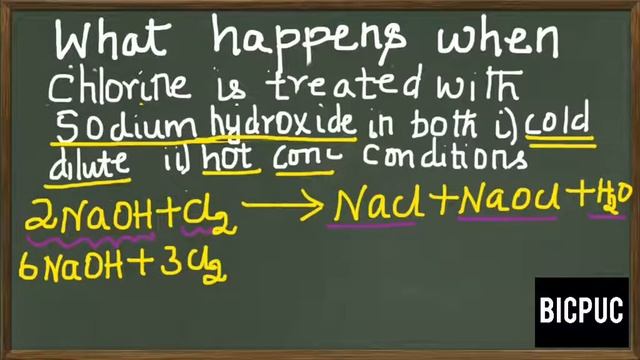 What happens when
Chlorine is treated with
Sodium hydroxide in both i) cold
dilute ii) hot conc conditions
2NaOH + Cl₂ → NaCl + NaOCl + H₂O
6NaOH + 3Cl₂
BICPUC